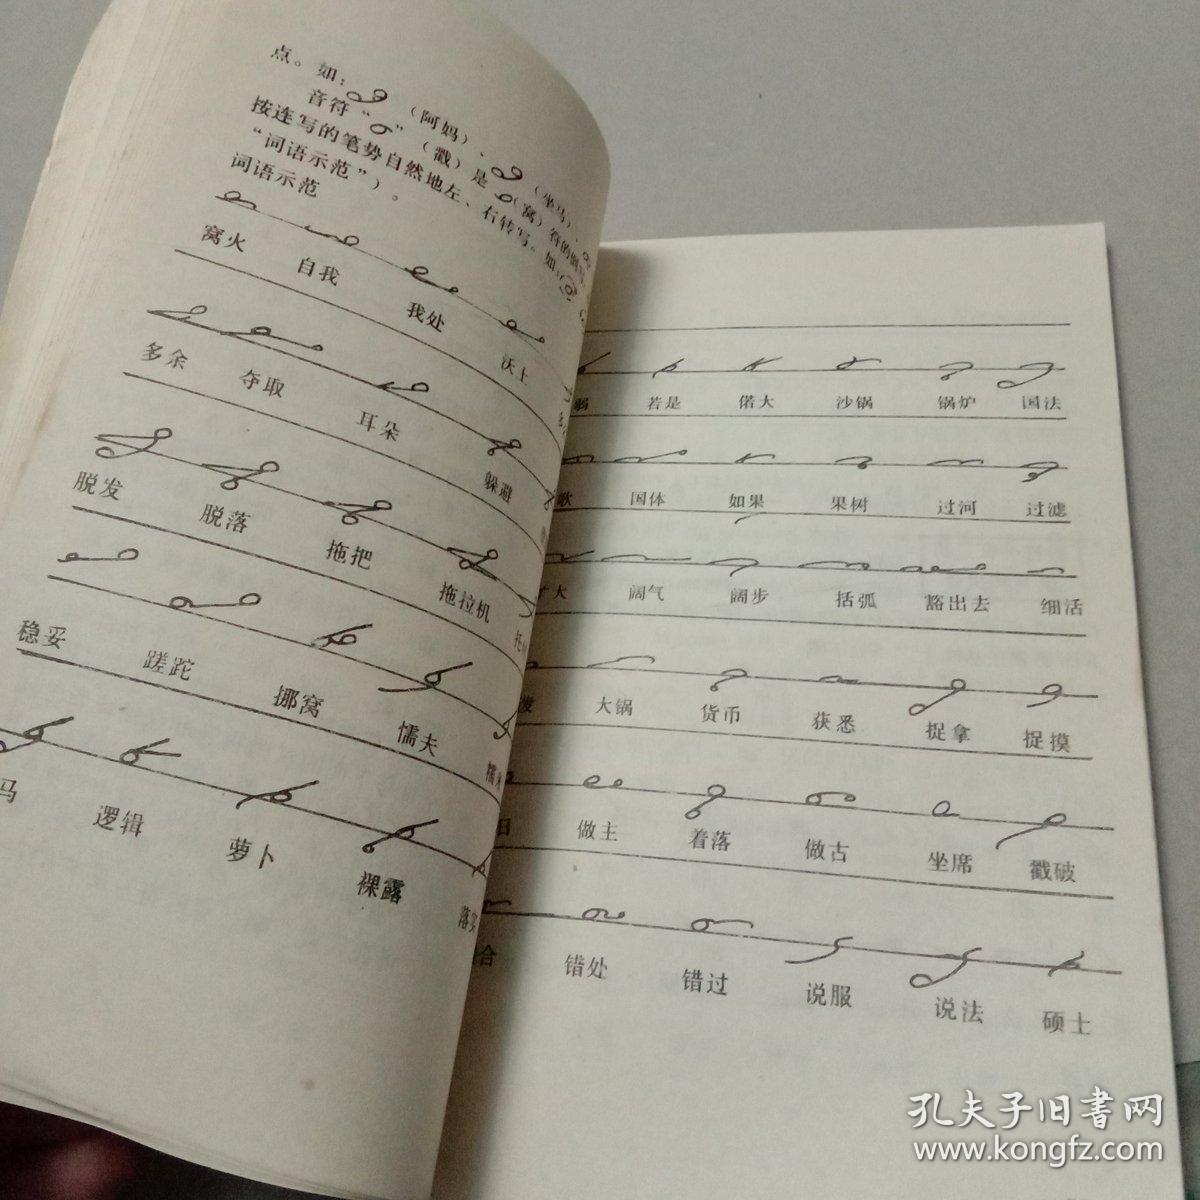 点。如：（阿妈）、（坐马）、
音符“”（戳）是（窝）符的倒
按连写的笔势自然地左、右转写。如：
“词语示范”）。
词语示范
窝火 自我 我处 沃土
多余 夺取 耳朵 躲避
脱发 脱落 拖把 拖拉机
稳妥 蹉跎 挪窝 懦夫 糯米
马 逻辑 萝卜 裸露 落实
弱 若是 偌大 沙锅 锅炉 国法
歌 国体 如果 果树 过河 过滤
扩大 阔气 阔步 括弧 豁出去 细活
大锅 货币 获悉 捉拿 捉摸
日 做主 着落 做古 坐席 戳破
合 错处 错过 说服 说法 硕士
孔夫子旧书网
www.kongfz.com